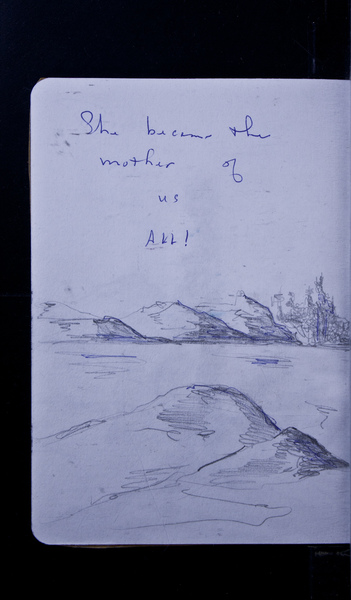 She became the
mother of
us
ALL!